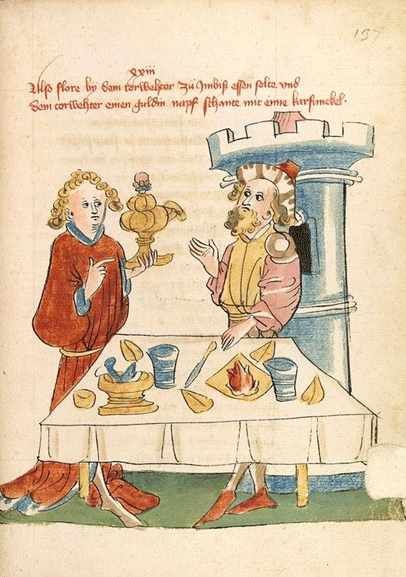 137
xxiii
Also flore by dem torwehter zů Imbiß essen solte vnd
dem torwehter einen guldin napf schancte mit eine karfunckel·